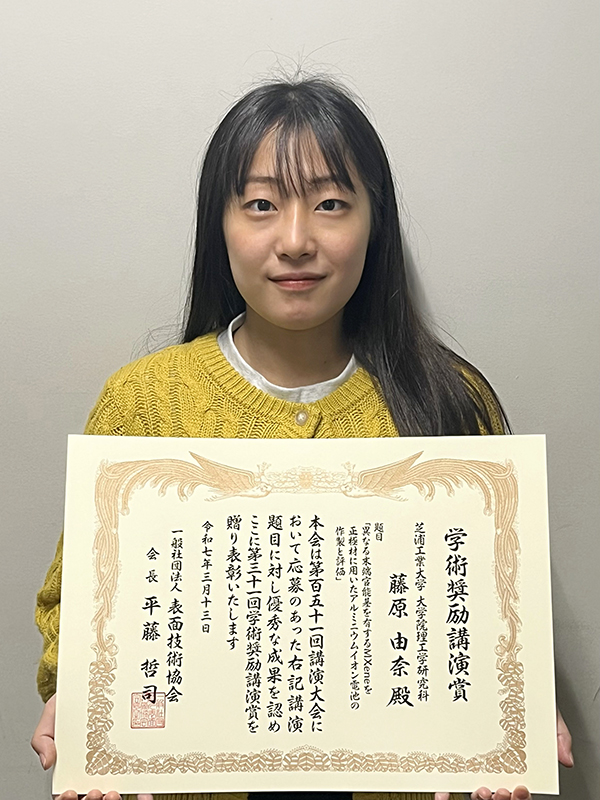 学術奨励講演賞
芝浦工業大学 大学院理工学研究科
藤原 由奈 殿
題目
「異なる末端官能基を有するMXeneを
正極材に用いたアルミニウムイオン電池の
作製と評価」
本会は第百五十一回講演大会に
おいて応募のあった右記講演
題目に対し優秀な成果を認め
ここに第三十一回学術奨励講演賞を
贈り表彰いたします
令和七年三月十三日
一般社団法人 表面技術協会
会長 平藤 哲司